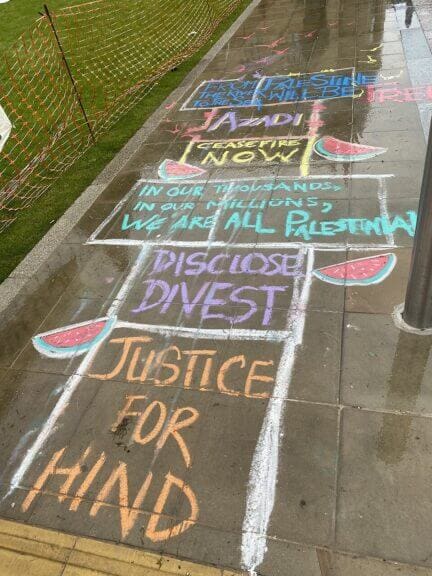 FROM PALESTINE
THE RIVER WILL BE FREE
TO THE SEA
AZADI
CEASEFIRE
NOW
IN OUR THOUSANDS,
IN OUR MILLIONS,
WE ARE ALL PALESTINIA
DISCLOSE
DIVEST
JUSTICE
FOR
HIND